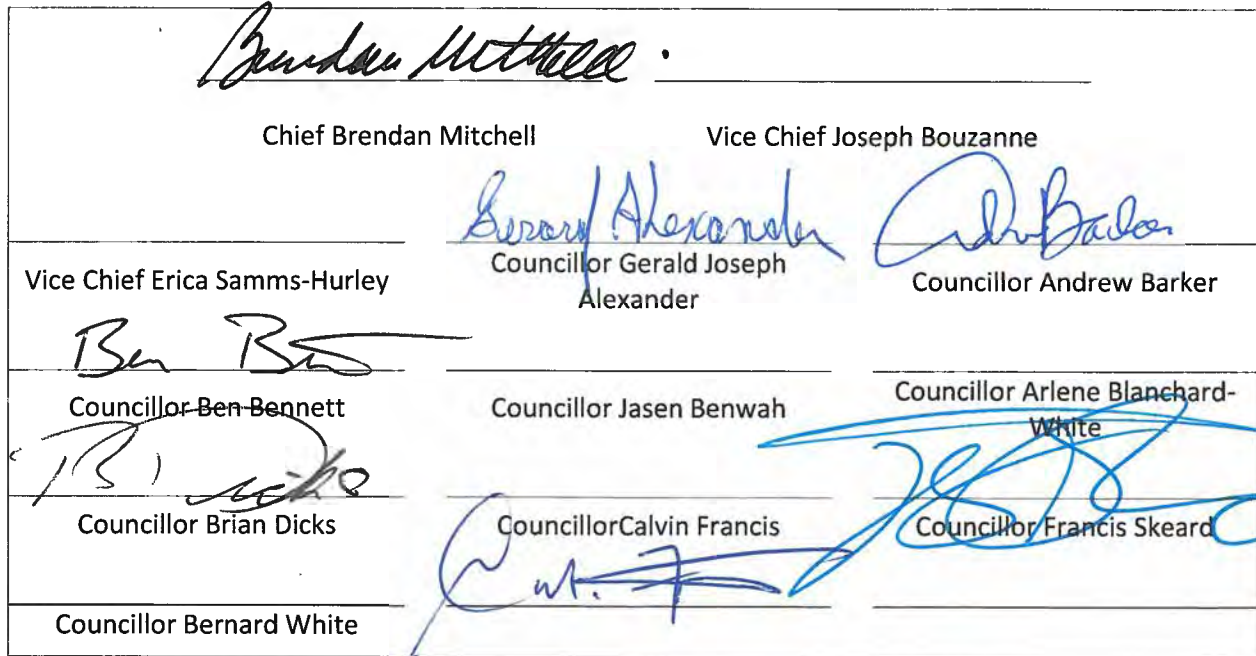 Brendan Mitchell
Chief Brendan Mitchell Vice Chief Joseph Bouzanne
Gerard Alexander
Vice Chief Erica Samms-Hurley Councillor Gerald Joseph Alexander Councillor Andrew Barker
Ben
Councillor Ben Bennett Councillor Jasen Benwah Councillor Arlene Blanchard-White
Councillor Brian Dicks CouncillorCalvin Francis Councillor Francis Skeard
Councillor Bernard White